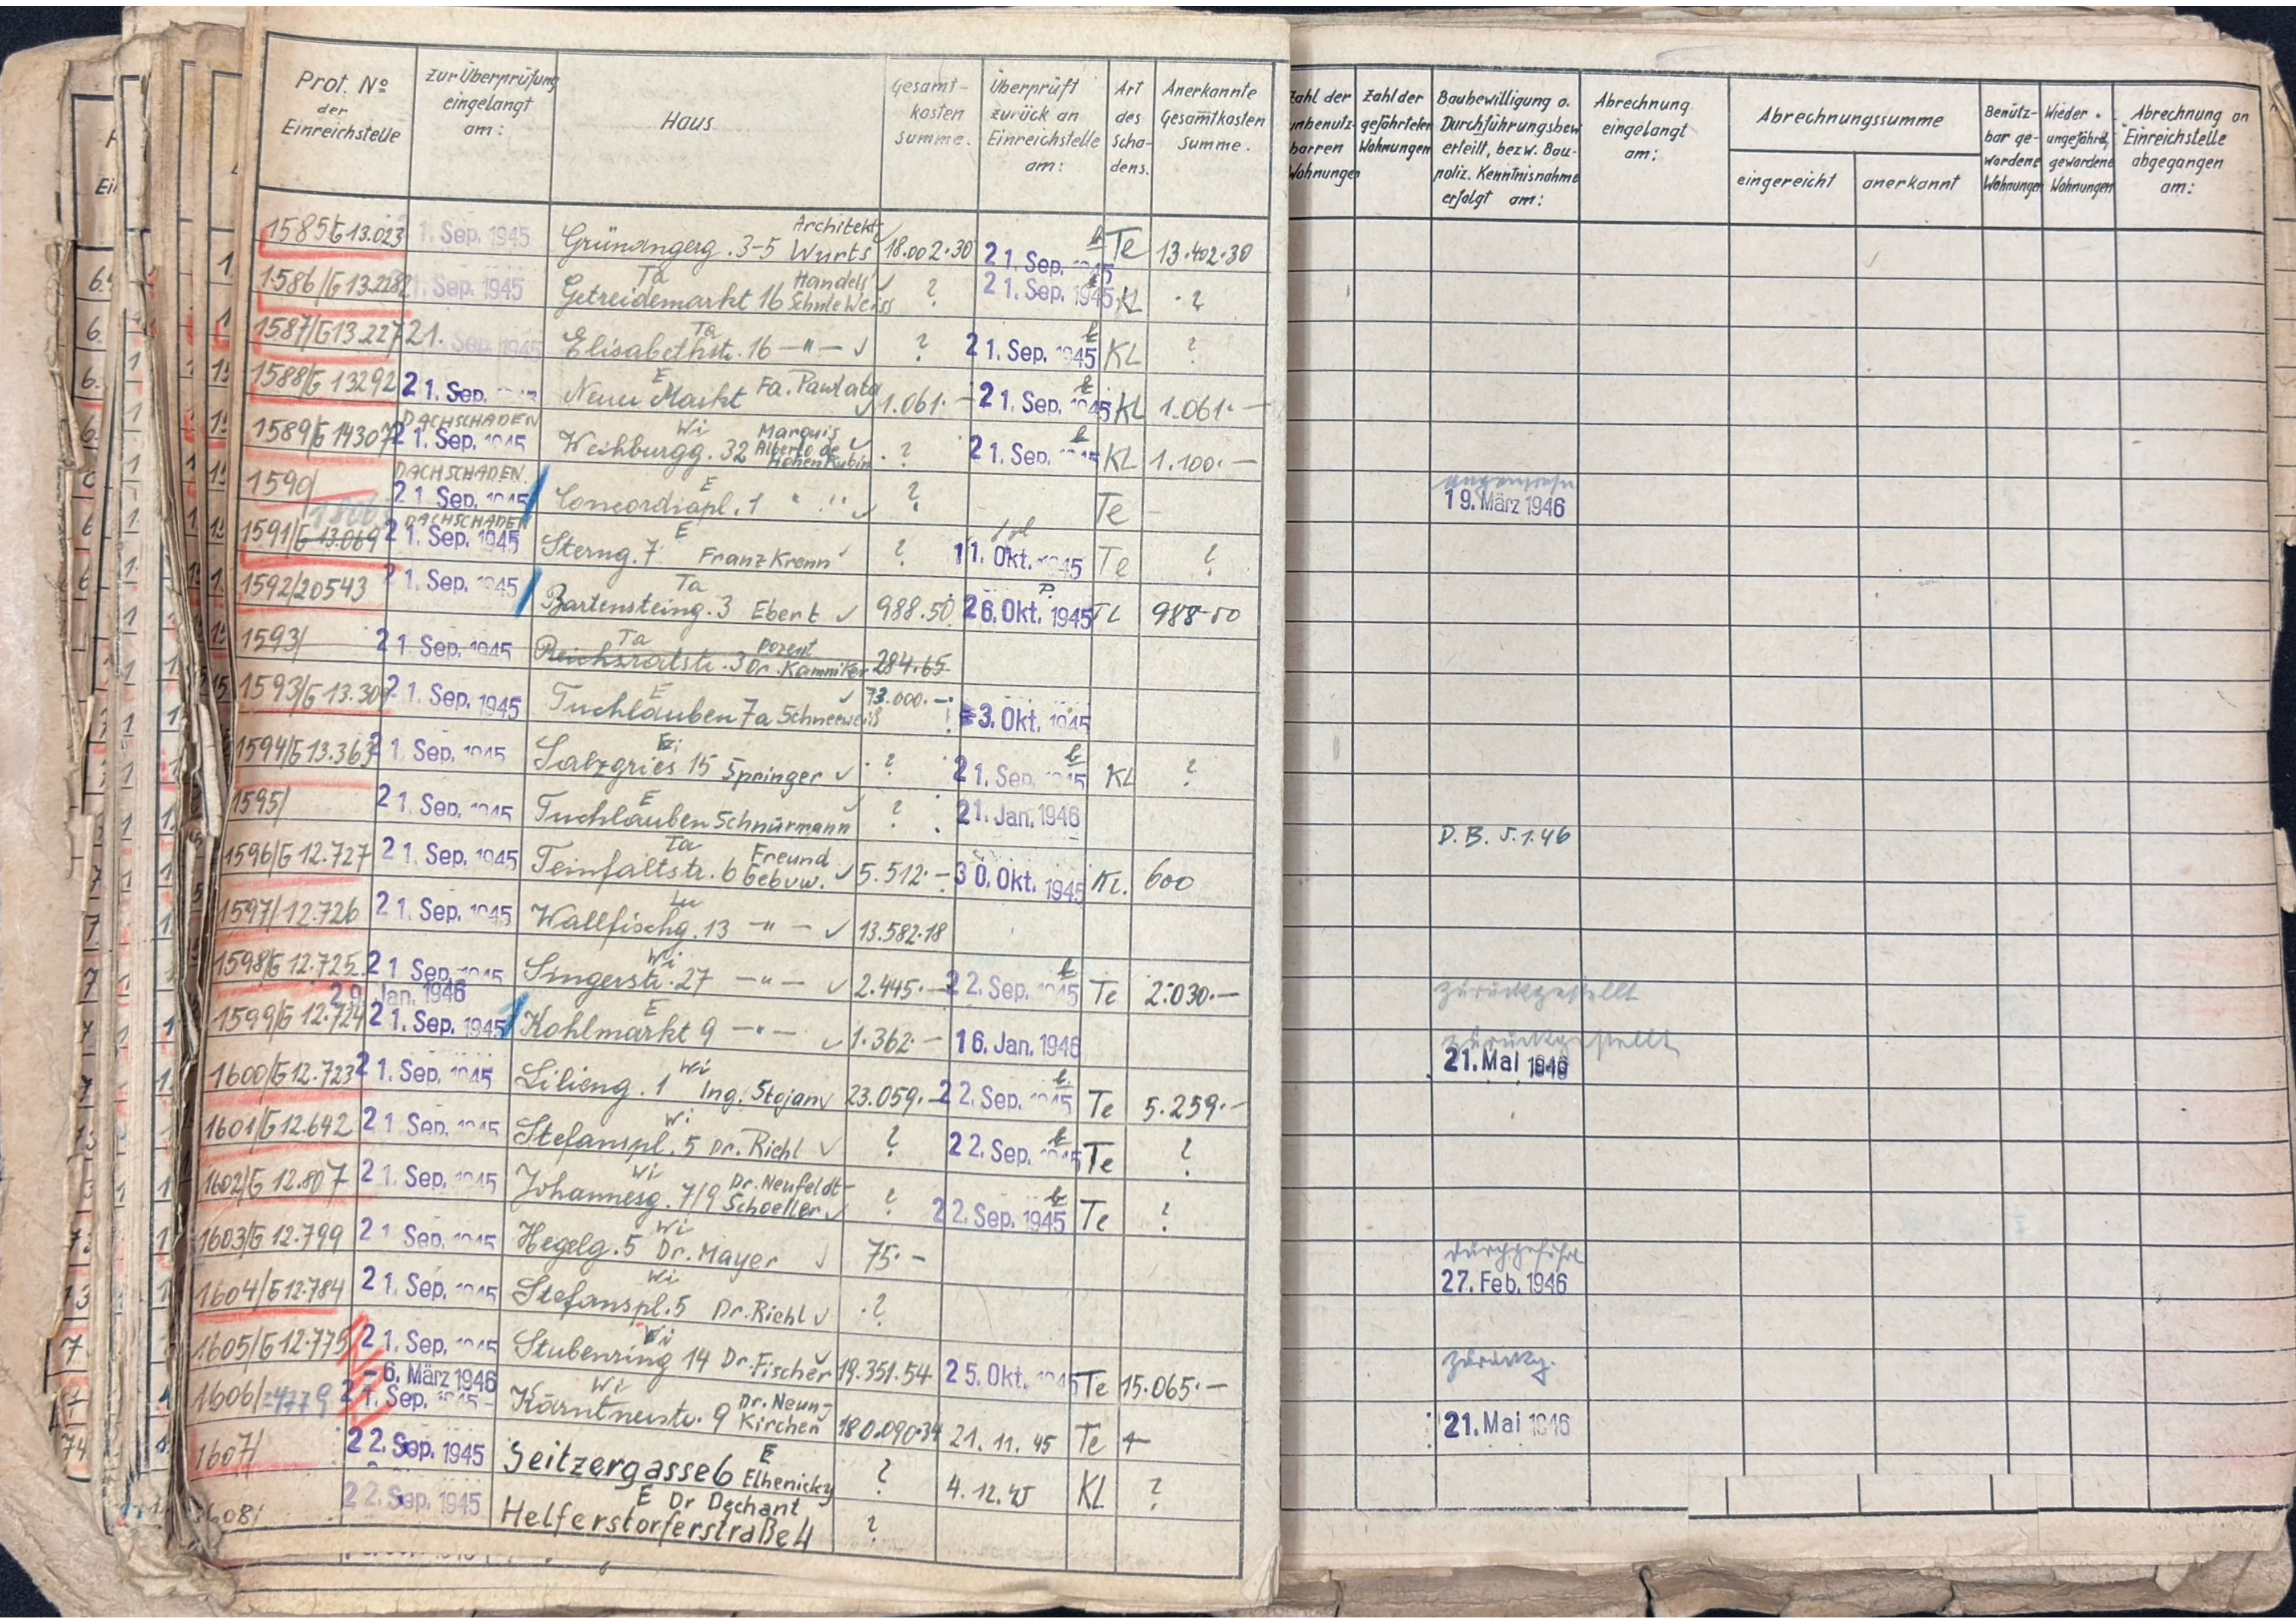 Prot. No der Einreichstelle
zur Überprüfung eingelangt am:
Haus
Gesamt-kosten summe.
Überprüft zurück an Einreichstelle am:
Art des Scha-dens.
Anerkannte Gesamtkosten Summe.
Zahl der unbenutz-barren Wohnungen
Zahl der gefährteten Wohnungen
Baubewilligung o. Durchführungsbew erteilt, bezw. Bau-poliz. Kenntnisnahme erfolgt am:
Abrechnung eingelangt am:
Abrechnungssumme
eingereicht
anerkannt
Benütz-bar ge-wordene Wohnungen
Wieder ungefährd. gewordene Wohnungen
Abrechnung an Einreichstelle abgegangen am:
1585/G 13.023 1. Sep. 1945 Grünangerg. 3-5 Architekt Wurts ✓ 18.002.30 21. Sep. 1945 Te 13.402.30
1586/G 21. Sep. 1945 Getreidemarkt 16 Ta Handels Schule Weiss ✓ ? 21. Sep. 1945 KL ?
1587/G 13.227 21. Sep. 1945 Elisabethstr. 16 Ta —"— ✓ ? 21. Sep. 1945 KL ?
1588/G 13292 21. Sep. Neuer Markt E Fa. Pawlata ✓ 1.061.— 21. Sep. 1945 KL 1.061.—
1589/G 14307 DACHSCHADEN 21. Sep. 1945 Weihburgg. 32 Wi Marquis Alberto de HohenKubin ✓ ? 21. Sep. 1945 KL 1.100.—
1590/ DACHSCHADEN 21. Sep. 1945 Concordiapl. 1 E " " ✓ ? Te 19. März 1946
1591/G 13.069 DACHSCHADEN 21. Sep. 1945 Sterng. 7 E Franz Krenn ✓ ? 11. Okt. 1945 Te ?
1592/20543 21. Sep. 1945 Bartensteing. 3 Ta Ebert ✓ 988.50 26. Okt. 1945 P. TL 988-50
1593/ 21. Sep. 1945 Reichsratstr. 3 Ta Dozent Dr. Kamniker 284.65
1593/G 13.30 21. Sep. 1945 Tuchlauben 7a E Schneeweiß ✓ 73.000.— 3. Okt. 1945
1594/G 13.363 21. Sep. 1945 Salzgries 15 Springer ✓ ? 21. Sep. 1945 KL ?
1595/ 21. Sep. 1945 Tuchlauben E Schnürmann ✓ ? 21. Jan. 1946
1596/G 12.727 21. Sep. 1945 Teinfaltstr. 6 Ta Freund Gebuw. ✓ 5.512.— 30. Okt. 1945 KL. 600 D.B. 5.1.46
1597/12.726 21. Sep. 1945 Wallfischg. 13 —"— ✓ 13.582.18
1598/G 12.725 21 Sep. 1945 Singerstr. 27 Wi —"— ✓ 2.445.— 22. Sep. 1945 Te 2.030.—
zurückgestellt
29. Jan. 1946
1599/G 12.724 21. Sep. 1945 Kohlmarkt 9 E —"— ✓ 1.362.— 16. Jan. 1946 zurückgestellt 21. Mai 1946
1600/G 12.723 21. Sep. 1945 Lilieng. 1 Wi Ing. Stojan ✓ 23.059.— 22. Sep. 1945 Te 5.259.—
1601/G 12.642 21. Sep. 1945 Stefanspl. 5 Wi Dr. Riehl ✓ ? 22. Sep. 1945 Te ?
1602/G 12.807 21. Sep. 1945 Johannesg. 7/9 Wi Dr. Neufeldt-Schoeller ✓ ? 22. Sep. 1945 Te ?
1603/G 12.799 21. Sep. 1945 Hegelg. 5 Wi Dr. Mayer ✓ 75.— durchgeführt 27. Feb. 1946
1604/G 12.784 21. Sep. 1945 Stefanspl. 5 Wi Dr. Riehl ✓ ?
1605/G 12.775 21. Sep. 1945 Stubenring 14 Wi Dr. Fischer ✓ 19.351.54 25. Okt. 1945 Te 15.065.—
zurückg.
- 6. März 1946
1606/ 21. Sep. 1945 Kärntnerstr. 9 Wi Dr. Neun-Kirchen 180.090.34 21. 11. 45 Te 21. Mai 1946
1607/ 22. Sep. 1945 Seitzergasse 6 E Elhenicky ? 4. 12. 45 KL ?
1608/ 22. Sep. 1945 Helferstorferstraße 4 E Dr Dechant ?